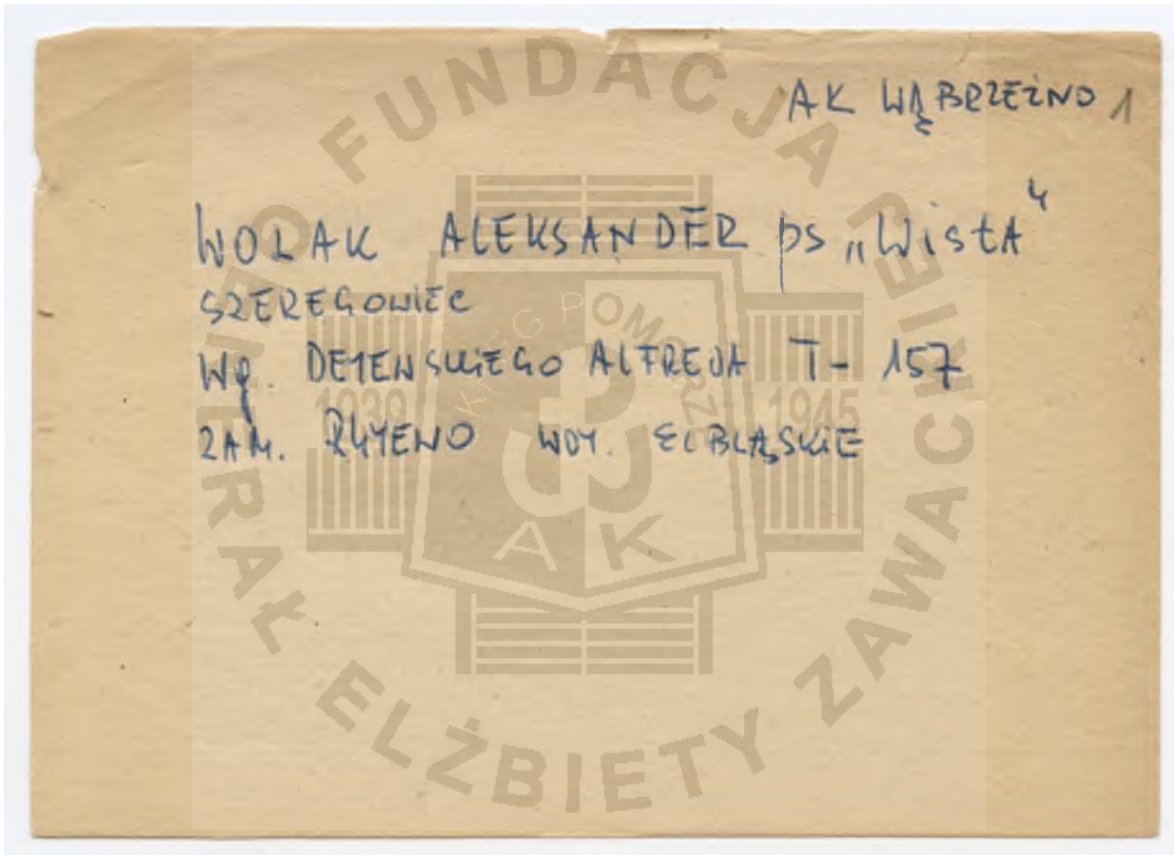 AK WĄBRZEŹNO 1
WOLAK ALEKSANDER ps „Wisła"
SZEREGOWIEC
Wg. DEJEŃSKIEGO ALFREDA T- 157
ZAM. RYJEWO WOJ. ELBLĄSKIE
FUNDACJA GENERAŁ ELŻBIETY ZAWACKIEJ
OKRĘG POMORZE
1939 1945
AK